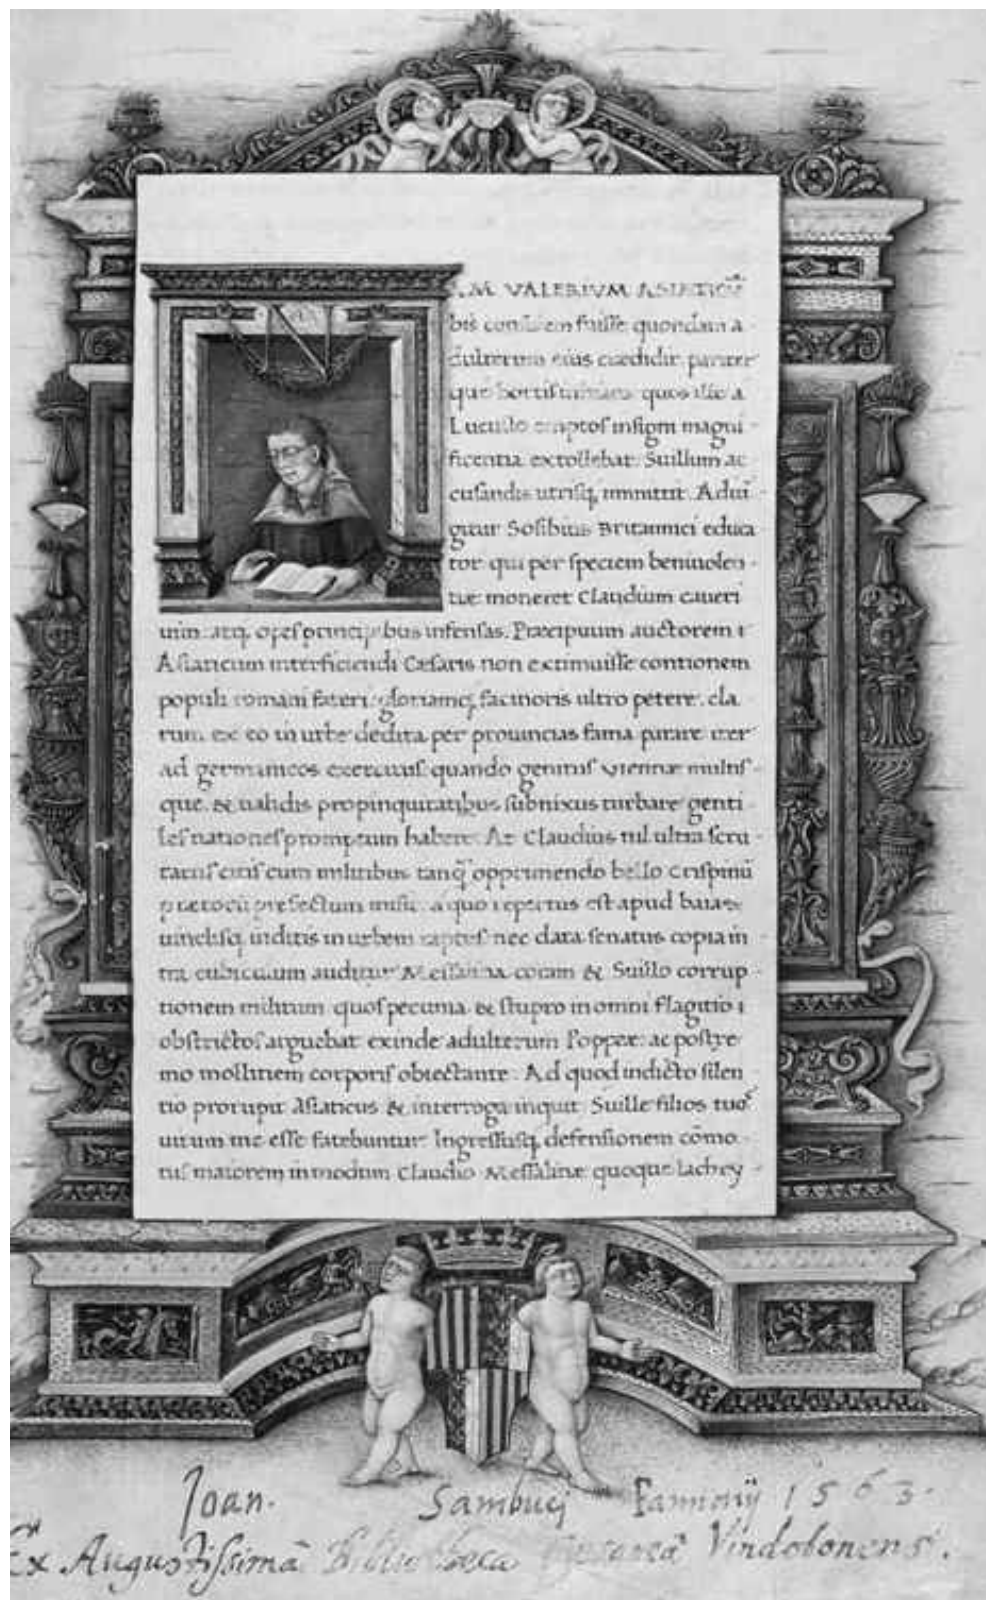 .M. VALERIVM ASIATICŪ
bis consulem fuisse quondam a
dulterum eius credidit pariter
que hortis inhians quos ille a
Lucullo cœptos insigni magni
ficentia extollebat. Suillum ac
cusandis utrisq; immittit. Adiū
gitur Sosibius Britannici educa
tor qui per speciem beniuolen
tiæ moneret Claudium caueri
uim. atq. opes principibus infensas. Præcipuum auctorem i
Asiaticum interficiendi Cæsaris non extimuisse contionem
populi romani fateri. gloriamq; facinoris ultro petere. cla
rum ex eo in urbe dedita per prouincias fama parare iter
ad germanicos exercitus. quando genitus Viennæ multis
que. & ualidis propinquitatibus subnixus turbare genti
les nationes promptum habere. At Claudius nil ultra scru
tatus citis cum militibus tanq̄ opprimendo bello Crispinū
prætorii prefectum misit. a quo repertus est apud baias
uinclisq. inditis in urbem raptus. nec data senatus copia in
tra cubiculum auditur Messalina coram & Suillo corrup
tionem militum quos pecunia & stupro in omni flagitio i
obstrictos arguebat exinde adulterum Poppææ. ac postre
mo mollitiem corporis obiectante. Ad quod indicto silen
tio prorupit Asiaticus & interroga inquit Suille filios tuos
uirum me esse fatebuntur Ingressusq. defensionem cōmo
tus maiorem in modum Claudio Messalinæ quoque lachry
Joan. Sambuci Pannonij 1563.
Ex Augustissimâ Bibliotheca Cæsareâ Vindobonensi.